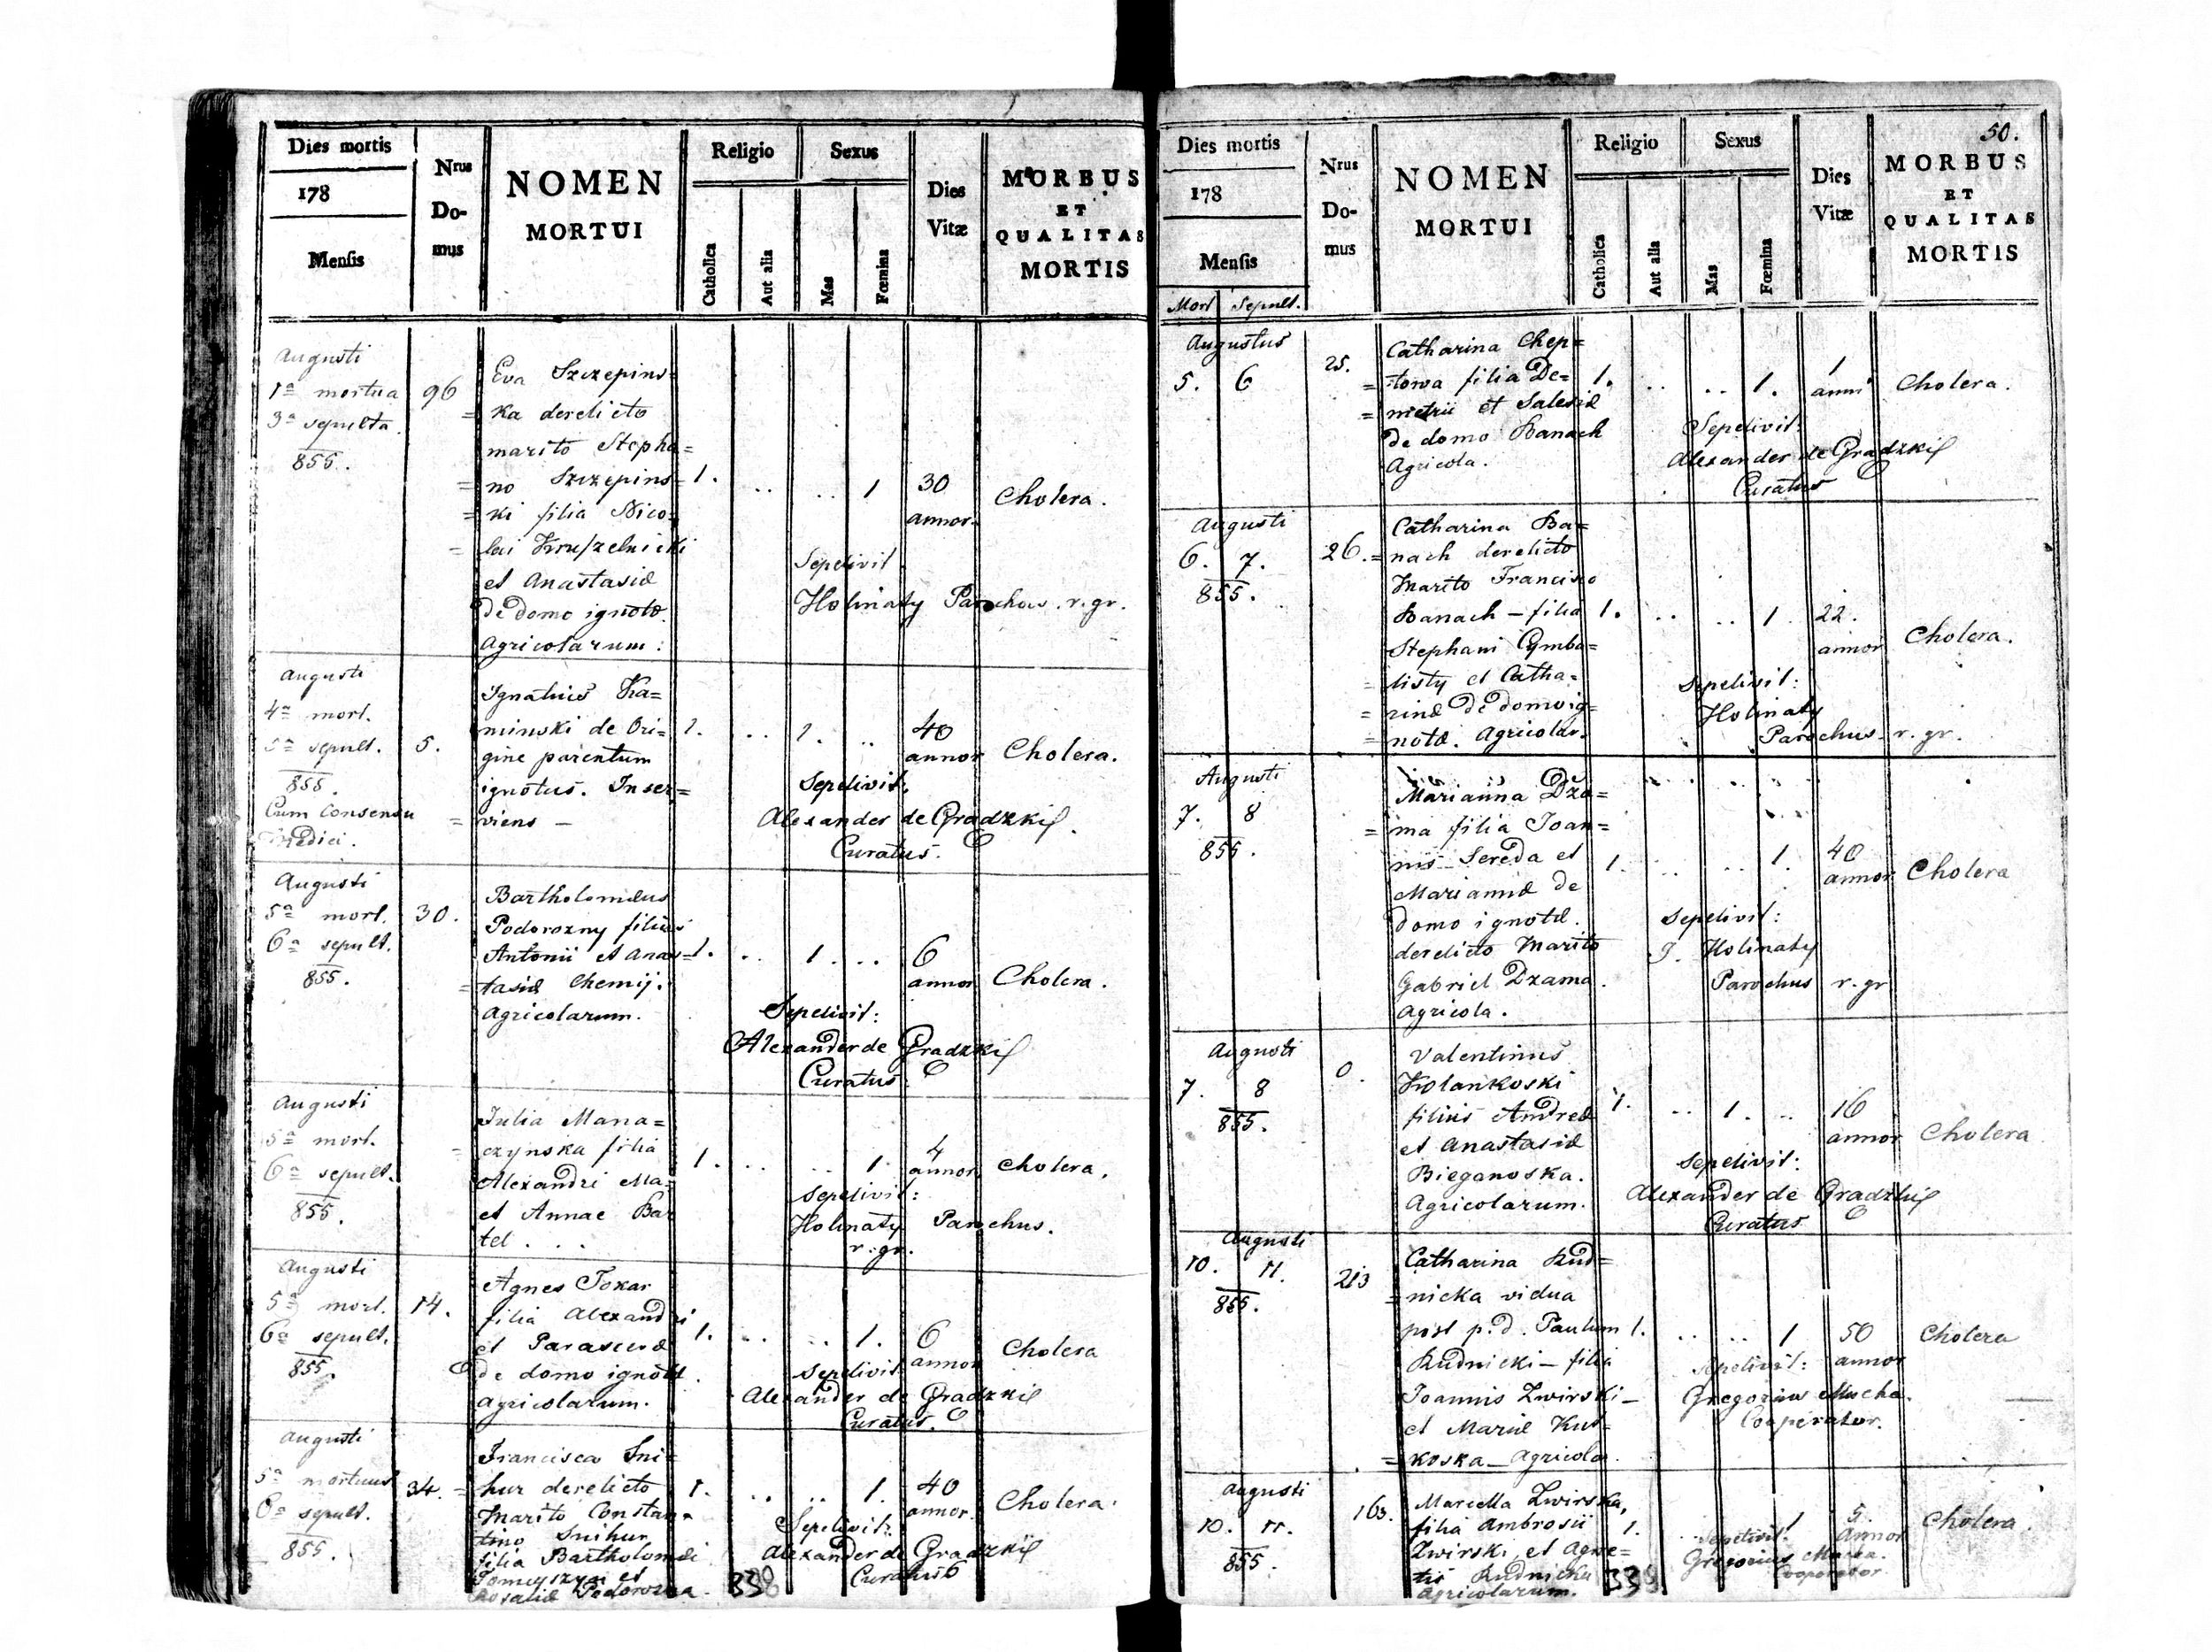 Dies mortis
178
Mensis
Nrus
Do-
mus
NOMEN
MORTUI
Religio
Catholica
Aut alia
Sexus
Mas
Fœmina
Dies
Vitæ
MORBUS
ET
QUALITAS
MORTIS
Augusti
1a mortua
3a sepulta
855.
96
Eva Szczepins=
=ka derelicto
marito Stepha=
=no Szczepins=
=ki filia Nico=
=lai Kruszelnicki
et Anastasiæ
de domo ignotæ.
Agricolarum:
1. .. .. 1
30
annor.
Cholera.
Sepelivit
Holinaty Parochus. r. gr.
Augusti
4a mort.
5a sepult.
855.
Cum consensu
Medici.
5.
Ignatius Ka=
minski de Ori=
gine parentum
ignotus. Inser=
=viens –
1. .. 1. ..
40
annor
Cholera.
Sepelivit.
Alexander de Gradzki
Curatus.
Augusti
5a mort.
6a sepult.
855.
30.
Bartholomæus
Podorozny filius
Antonii et Anas=
=tasiæ Chemij.
Agricolarum.
1. .. 1. ..
6
annor
Cholera.
Sepelivit:
Alexander de Gradzki
Curatus.
Augusti
5a mort.
6a sepult.
855.
Julia Mana=
=czynska filia
Alexandri Ma=
et Annae Bar
tel . . .
1. .. .. 1.
4
annor
Cholera.
Sepelivit:
Holinaty Parochus.
r. gr.
Augusti
5a mort.
6a sepult.
855.
14.
Agnes Tokar
filia Alexandri
et Parascevæ
de domo ignotæ.
Agricolarum.
1. .. .. 1.
6
annor
Cholera
Sepelivit
Alexander de Gradzki
Curatus.
Augusti
5a mortuus
6a sepult.
855.
34.
Francisca Sni=
=hur derelicto
Marito Constan=
tino Snihur
filia Bartholomæi
et
Rosaliæ Podorozna.
1. .. .. 1.
40
annor.
Cholera.
Sepelivit:
Alexander de Gradzki
Curatus
338
50.
Dies mortis
178
Mensis
Mort Sepult.
Nrus
Do-
mus
NOMEN
MORTUI
Religio
Catholica
Aut alia
Sexus
Mas
Fœmina
Dies
Vitæ
MORBUS
ET
QUALITAS
MORTIS
Augustus
5. 6
25.
Catharina Chep=
=towa filia De=
=metrii et Salesiæ
de domo Banach
Agricola.
1. .. .. 1.
1
anni
Cholera.
Sepelivit:
Alexander de Gradzki
Curatus
Augusti
6. 7.
855.
26.
Catharina Ba=
=nach derelicto
Marito Francisco
Banach – filia
Stephani Cymba=
=listy et Catha=
=rinæ de domo ig=
=notæ. Agricolar.
1. .. .. 1
22.
annor
Cholera.
Sepelivit:
Holinaty
Parochus r. gr.
Augusti
7. 8
855.
Marianna Dza=
=ma filia Joan=
nis Sereda et
Mariannæ de
domo ignotæ.
derelicto Marito
Gabriel Dzama.
Agricola.
1. .. .. 1.
40
annor
Cholera
Sepelivit:
J. Holinaty
Parochus r. gr
Augusti
7. 8
855.
0.
Valentinus
Kolankoski
filius Andreæ
et Anastasiæ
Bieganoska.
Agricolarum.
1. .. 1. ..
16
annor
Cholera
Sepelivit:
Alexander de Gradzki
Curatus
Augusti
10. 11.
855.
213
Catharina Rud=
=nicka vidua
post p. d. Paulum
Rudnicki – filia
Joannis Zwirski –
et Mariæ Kut=
=koska – Agricolar.
1. .. .. 1
50
annor
Cholera
Sepelivit:
Gregorius Mucha.
Cooperator.
Augusti
10. 11.
855.
163.
Marcella Zwirska,
filia Ambrosii
Zwirski et Agne=
tis Rudnicka
Agricolarum.
1. .. 1
5.
annor
Cholera.
Sepelivit.
Gregorius Mucha.
Cooperator
339